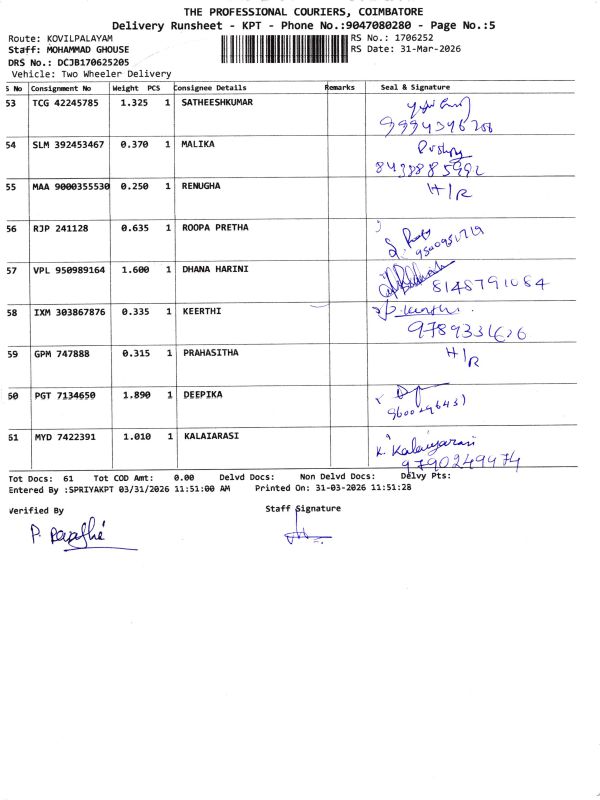 THE PROFESSIONAL COURIERS, COIMBATORE
Delivery Runsheet - KPT - Phone No.:9047080280 - Page No.:5
Route: KOVILPALAYAM
RS No.: 1706252
Staff: MOHAMMAD GHOUSE
RS Date: 31-Mar-2026
DRS No.: DCJB170625205
Vehicle: Two Wheeler Delivery
S No Consignment No Weight PCS Consignee Details Remarks Seal & Signature
53 TCG 42245785 1.325 1 SATHEESHKUMAR
54 SLM 392453467 0.370 1 MALIKA
55 MAA 9000355530 0.250 1 RENUGHA H/R
56 RJP 241128 0.635 1 ROOPA PRETHA
57 VPL 950989164 1.600 1 DHANA HARINI 8148791084
58 IXM 303867876 0.335 1 KEERTHI
59 GPM 747888 0.315 1 PRAHASITHA H/R
60 PGT 7134650 1.890 1 DEEPIKA
61 MYD 7422391 1.010 1 KALAIARASI K. Kalaiyarasi
9790249974
Tot Docs: 61 Tot COD Amt: 0.00 Delvd Docs: Non Delvd Docs: Delvy Pts:
Entered By :SPRIYAKPT 03/31/2026 11:51:00 AM Printed On: 31-03-2026 11:51:28
Verified By
Staff Signature